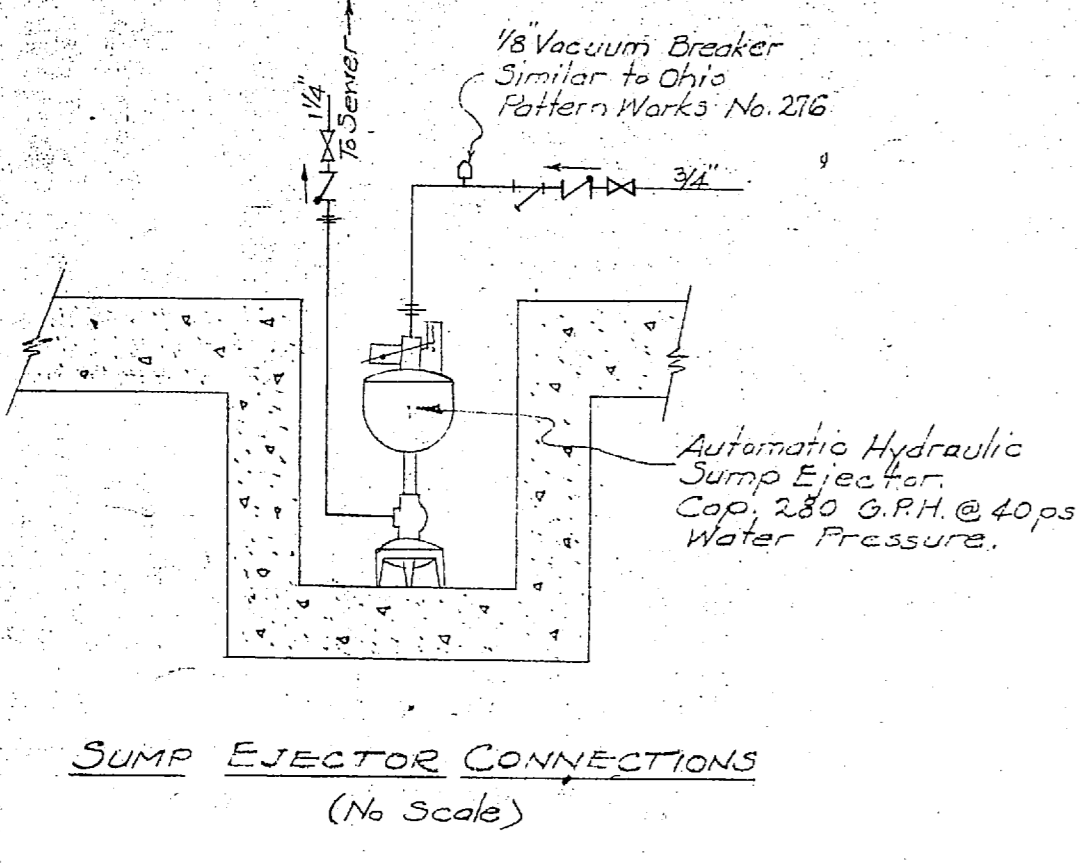 1/8" Vacuum Breaker
Similar to Ohio
Pattern Works No. 276
1 1/4"
To Sewer
3/4"
Automatic Hydraulic
Sump Ejector.
Cap. 280 G.P.H. @ 40 ps
Water Pressure.
SUMP EJECTOR CONNECTIONS
(No Scale)